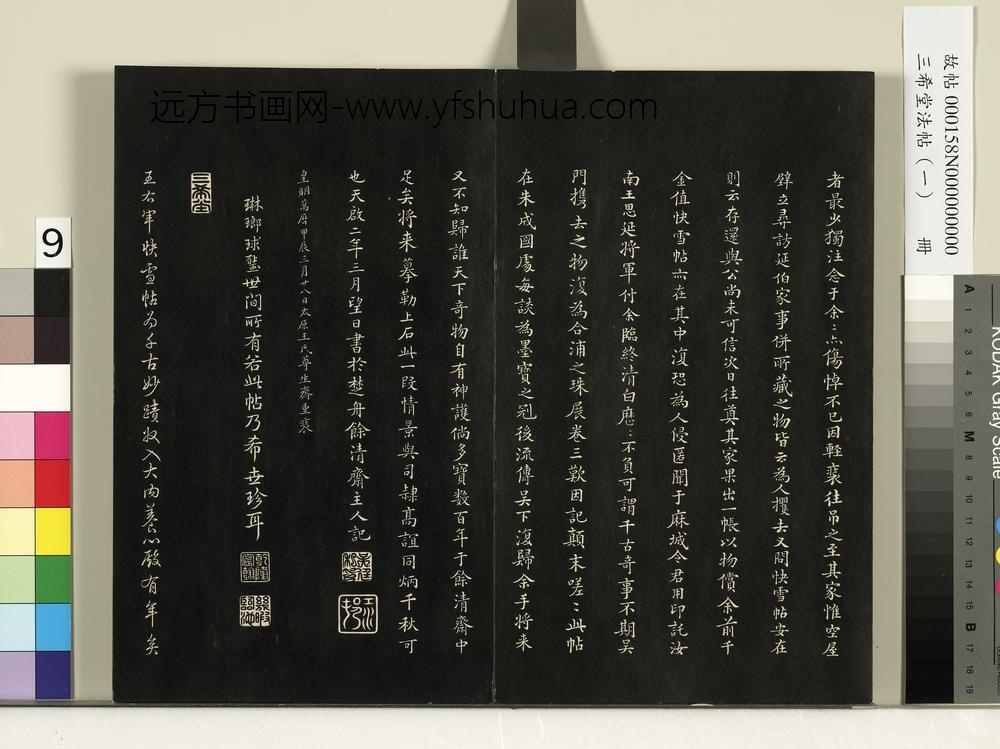 远方书画网-www.yfshuhua.com
故帖 000158N000000000
三希堂法帖（一） 冊
者最少獨注念于余二亦傷悼不已因輕裘往吊之至其家惟空屋
壁立尋訪延伯家事併所藏之物皆云為人攫去又問快雪帖安在
則云存還與公尚未可信次日往奠其家果出一帳以物償余前千
金值快雪帖亦在其中復恐為人侵匿聞于麻城令君用印託汝
南王思延將軍付余臨終清白歷二不負可謂千古奇事不期吴
門携去之物復為合浦之珠展卷三歎因記顛末嗟二此帖
在朱成國處每談為墨寶之冠後流傳吴下復歸余手將来
又不知歸誰天下奇物自有神護倘多寶数百年于餘清齋中
足矣将来摹勒上石此一段情景與司隷高誼同炳千秋可
也天啟二年三月望日書於楚舟餘清齋主人記
皇明萬曆甲辰三月廿八日太原王氏尊生齋重裹
琳瑯球璧世间所有若此帖乃希世珍耳
三希堂
王右軍快雪帖為千古妙蹟收入大内養心殿有年矣
9
KODAK Gray Scale
A 1 2 3 4 5 6 M 8 9 10 11 12 13 14 15 B 17 18 19